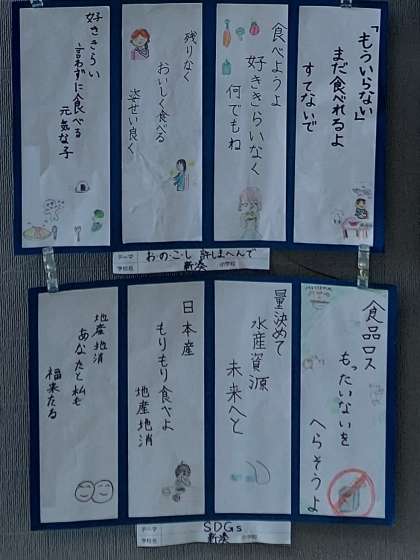 「もういらない」
まだ食べれるよ
すてないで
食べようよ
好ききらいなく
何でもね
残りなく
おいしく食べる
姿せい良く
好ききらい
言わずに食べる
元気な子
テーマ
わ・の・こ・し 許しまへんで
学校名
新湊 小学校
食品ロス
もったいないを
へらそうよ
量決めて
水産資源
未来へと
日本産
もりもり食べよ
地産地消
地産地消
あなたと私も
福来たる
テーマ
SDGs
学校名
新湊 小学校